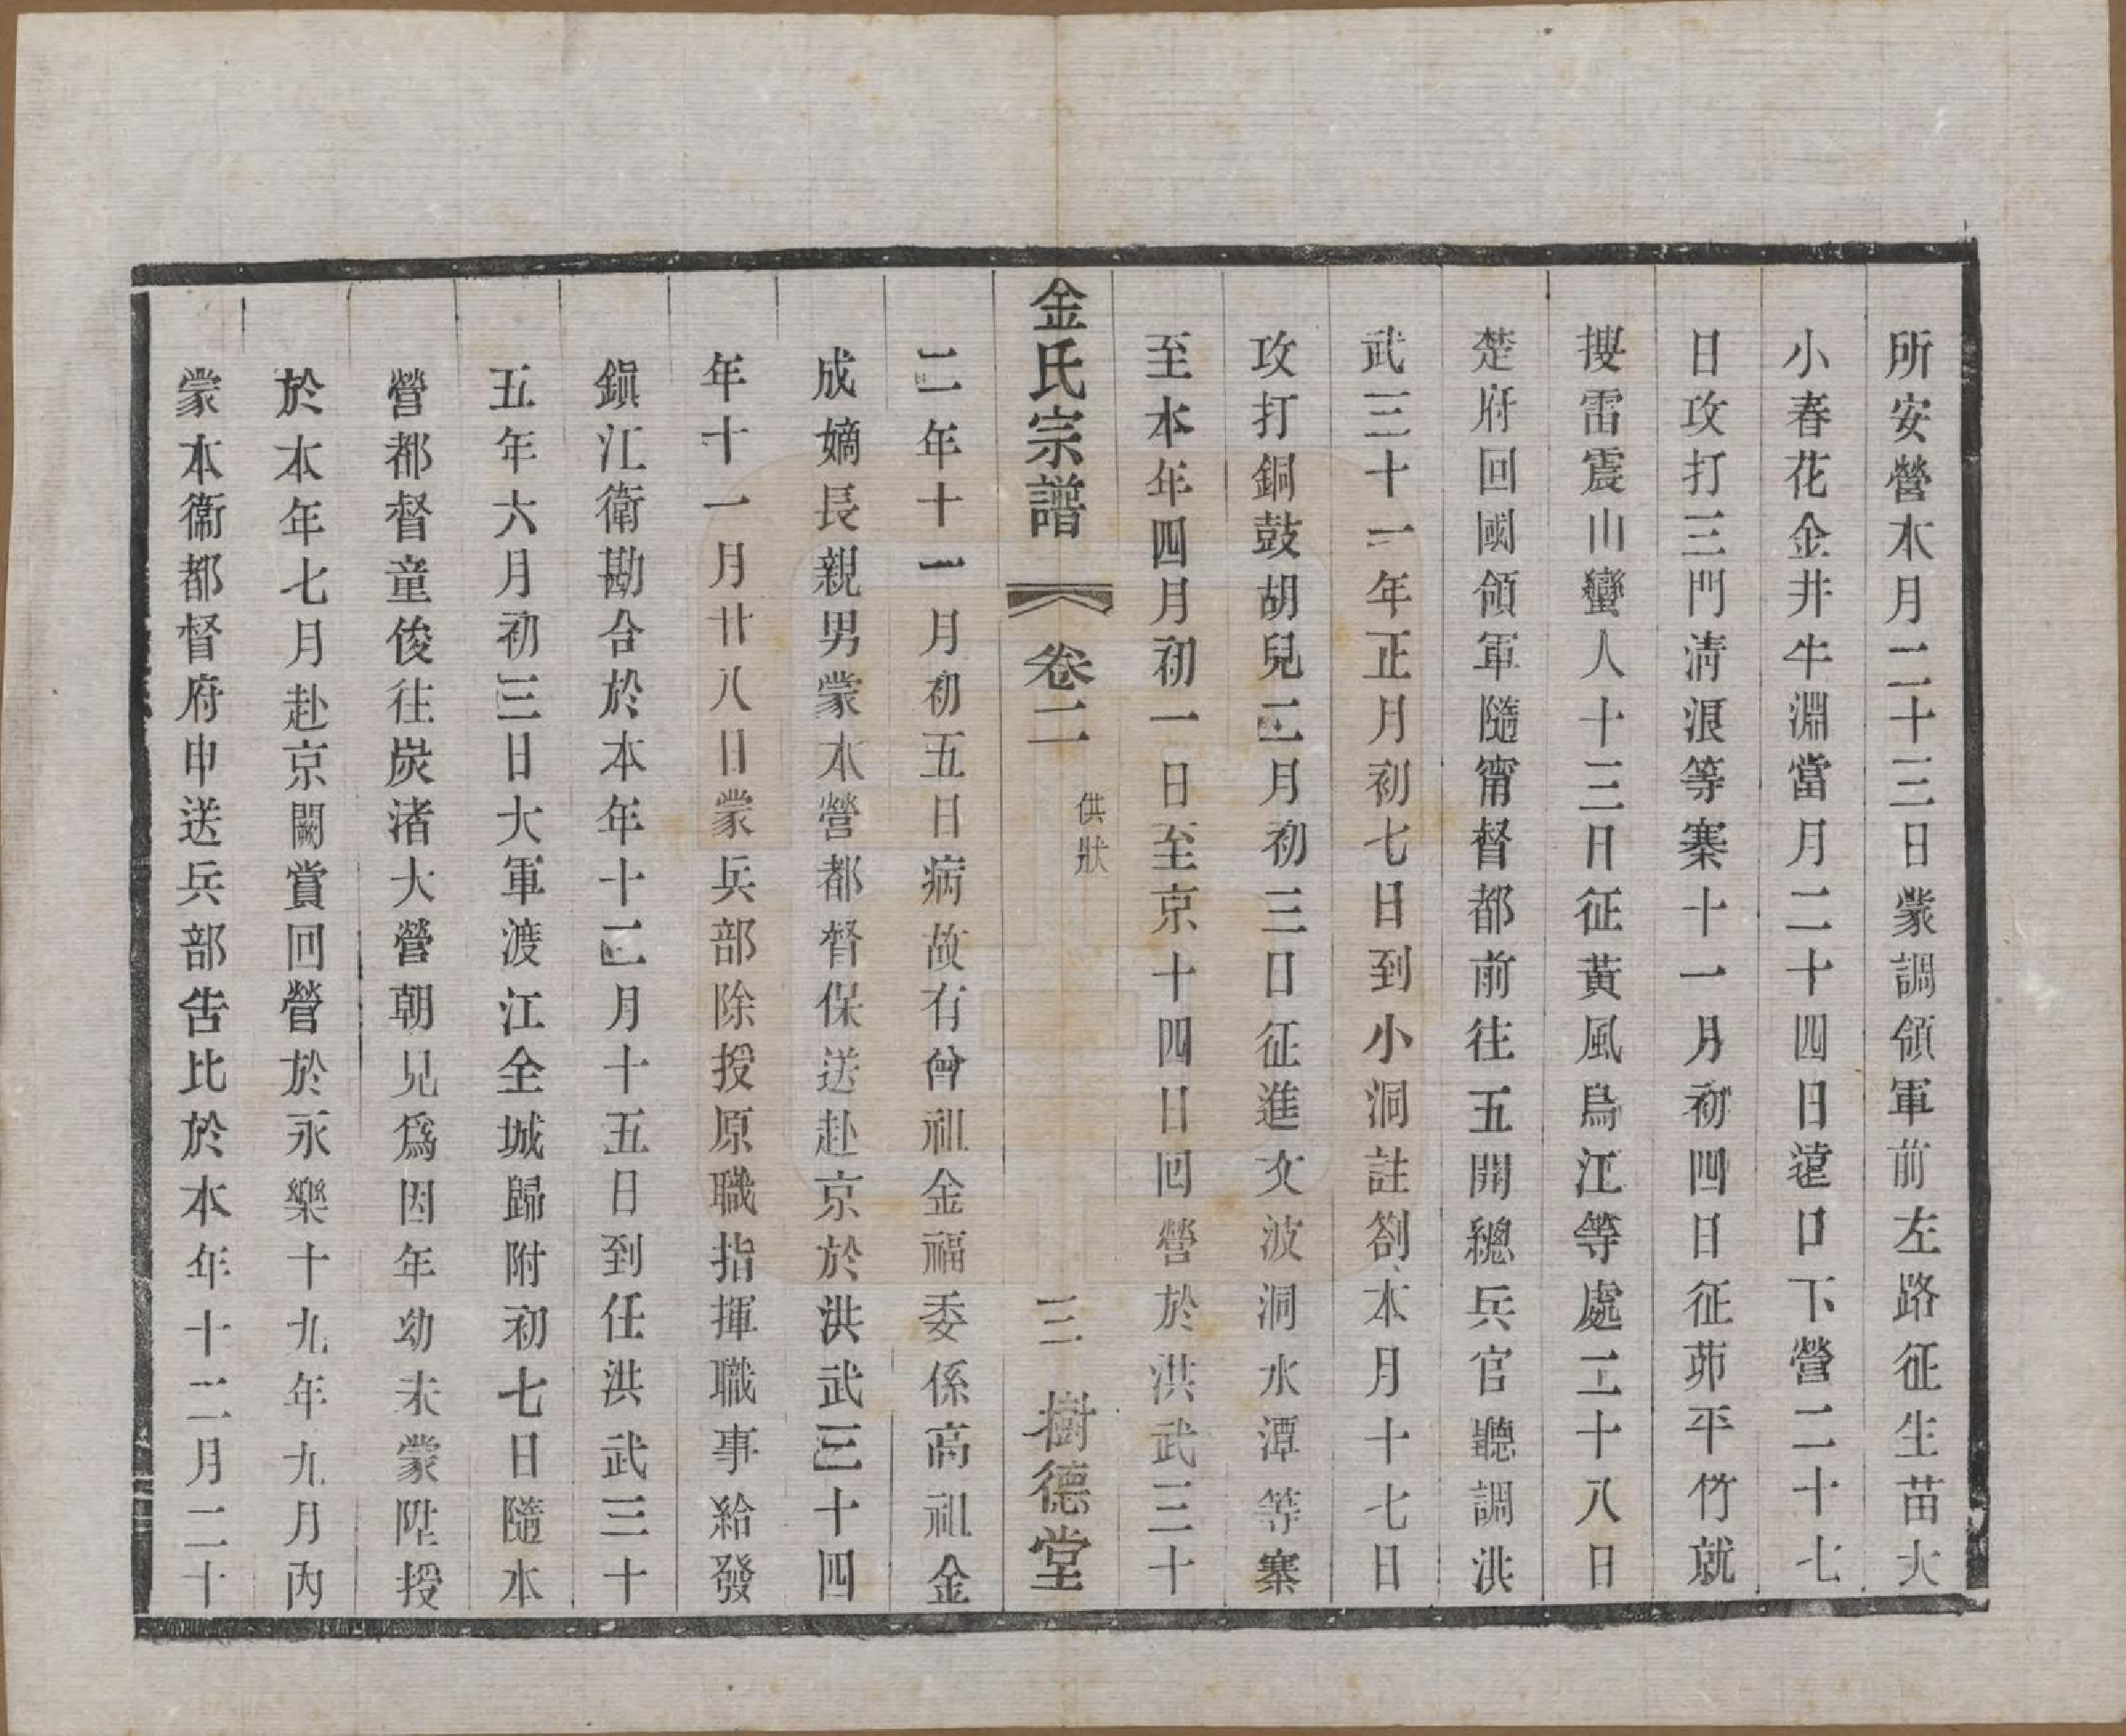 所安營本月二十三日蒙調領軍前左路征生苗大
小春花金井牛淵當月二十四日遠口下營二十七
日攻打三門淸浪等寨十一月初四日征茆平竹就
搜雷震山蠻人十三日征黃風烏江等處二十八日
楚府回國領軍隨甯督都前往五開總兵官聽調洪
武三十一年正月初七日到小洞註劄本月十七日
攻打銅鼓胡兒二月初三日征進文波洞水潭等寨
至本年四月初一日至京十四日回營於洪武三十
金氏宗譜 卷二 供狀 三 樹德堂
二年十一月初五日病故有曾祖金福委係高祖金
成嫡長親男蒙本營都督保送赴京於洪武三十四
年十一月廿八日蒙兵部除授原職指揮職事給發
鎭江衛勘合於本年十二月十五日到任洪武三十
五年六月初三日大軍渡江全城歸附初七日隨本
營都督童俊往炭渚大營朝見爲因年幼未蒙陞授
於本年七月赴京闕賞回營於永樂十九年九月內
蒙本衞都督府申送兵部告比於本年十二月二十